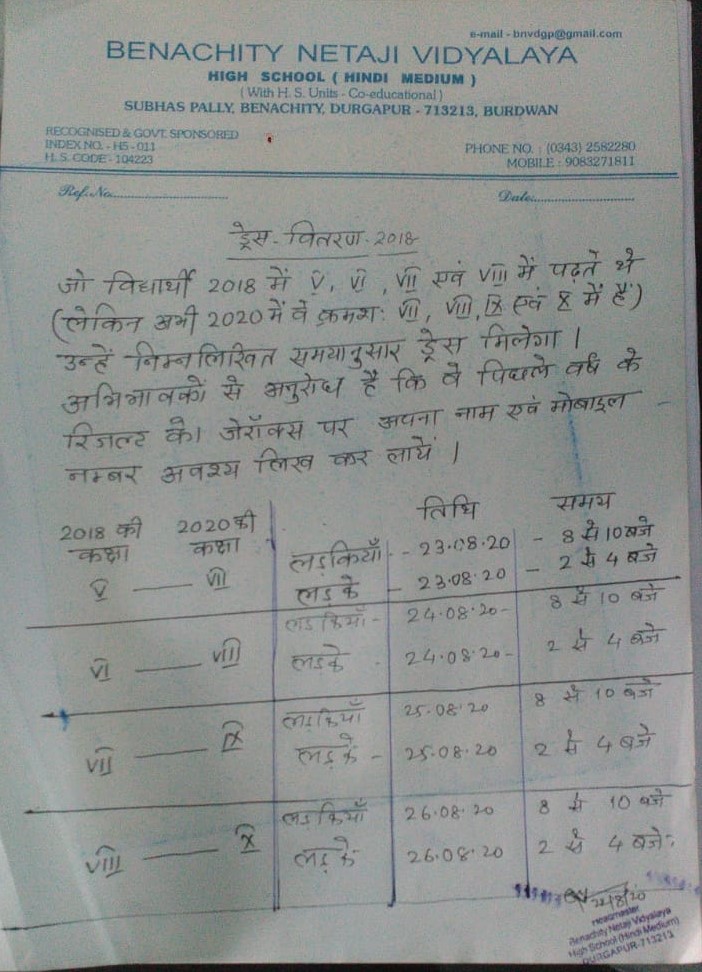 e-mail - bnvdgp@gmail.com
BENACHITY NETAJI VIDYALAYA
HIGH SCHOOL ( HINDI MEDIUM )
( With H. S. Units - Co-educational )
SUBHAS PALLY, BENACHITY, DURGAPUR - 713213, BURDWAN
RECOGNISED & GOVT. SPONSORED
INDEX NO. - H5 - 011
H.S. CODE - 104223
PHONE NO. : (0343) 2582280
MOBILE : 9083271811
Ref. No.
Date
ड्रेस - वितरण - 2018
जो विद्यार्थी 2018 में V, VI, VII एवं VIII में पढ़ते थे
(लेकिन अभी 2020 में वे क्रमशः VII, VIII, IX एवं X में हैं)
उन्हें निम्नलिखित समयानुसार ड्रेस मिलेगा ।
अभिभावकों से अनुरोध है कि वे पिछले वर्ष के
रिजल्ट के जेरॉक्स पर अपना नाम एवं मोबाइल
नम्बर अवश्य लिख कर लायें ।
2018 की कक्षा 2020 की कक्षा तिथि समय
लड़कियाँ - 23.08.20 - 8 से 10 बजे
V — VII लड़के - 23.08.20 - 2 से 4 बजे
लडकियाँ - 24.08.20 - 8 से 10 बजे
VI — VIII लड़के - 24.08.20 - 2 से 4 बजे
लड़कियाँ 25.08.20 8 से 10 बजे
VII — IX लड़के - 25.08.20 2 से 4 बजे
लड़कियाँ 26.08.20 8 से 10 बजे
VIII — X लड़के 26.08.20 2 से 4 बजे
Headmaster
Benachity Netaji Vidyalaya
High School (Hindi Medium)
DURGAPUR-713213